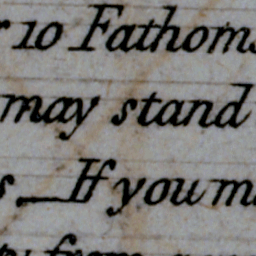 r 10 Fathoms
may stand
s. If you m
from